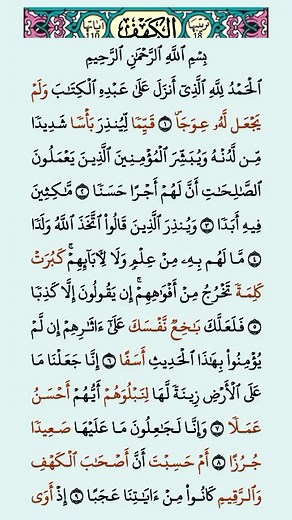 الكهف
بِسْمِ اللَّهِ الرَّحْمَٰنِ الرَّحِيمِ
الْحَمْدُ لِلَّهِ الَّذِي أَنزَلَ عَلَىٰ عَبْدِهِ الْكِتَابَ وَلَمْ
يَجْعَل لَّهُ عِوَجًا ۜ ١ قَيِّمًا لِّيُنذِرَ بَأْسًا شَدِيدًا
مِّن لَّدُنْهُ وَيُبَشِّرَ الْمُؤْمِنِينَ الَّذِينَ يَعْمَلُونَ
الصَّالِحَاتِ أَنَّ لَهُمْ أَجْرًا حَسَنًا ٢ مَّاكِثِينَ
فِيهِ أَبَدًا ٣ وَيُنذِرَ الَّذِينَ قَالُوا اتَّخَذَ اللَّهُ وَلَدًا
٤ مَّا لَهُم بِهِ مِنْ عِلْمٍ وَلَا لِآبَائِهِمْ ۚ كَبُرَتْ
كَلِمَةً تَخْرُجُ مِنْ أَفْوَاهِهِمْ ۚ إِن يَقُولُونَ إِلَّا كَذِبًا
٥ فَلَعَلَّكَ بَاخِعٌ نَّفْسَكَ عَلَىٰ آثَارِهِمْ إِن لَّمْ
يُؤْمِنُوا بِهَٰذَا الْحَدِيثِ أَسَفًا ٦ إِنَّا جَعَلْنَا مَا
عَلَى الْأَرْضِ زِينَةً لَّهَا لِنَبْلُوَهُمْ أَيُّهُمْ أَحْسَنُ
عَمَلًا ٧ وَإِنَّا لَجَاعِلُونَ مَا عَلَيْهَا صَعِيدًا
جُرُزًا ٨ أَمْ حَسِبْتَ أَنَّ أَصْحَابَ الْكَهْفِ
وَالرَّقِيمِ كَانُوا مِنْ آيَاتِنَا عَجَبًا ٩ إِذْ أَوَى